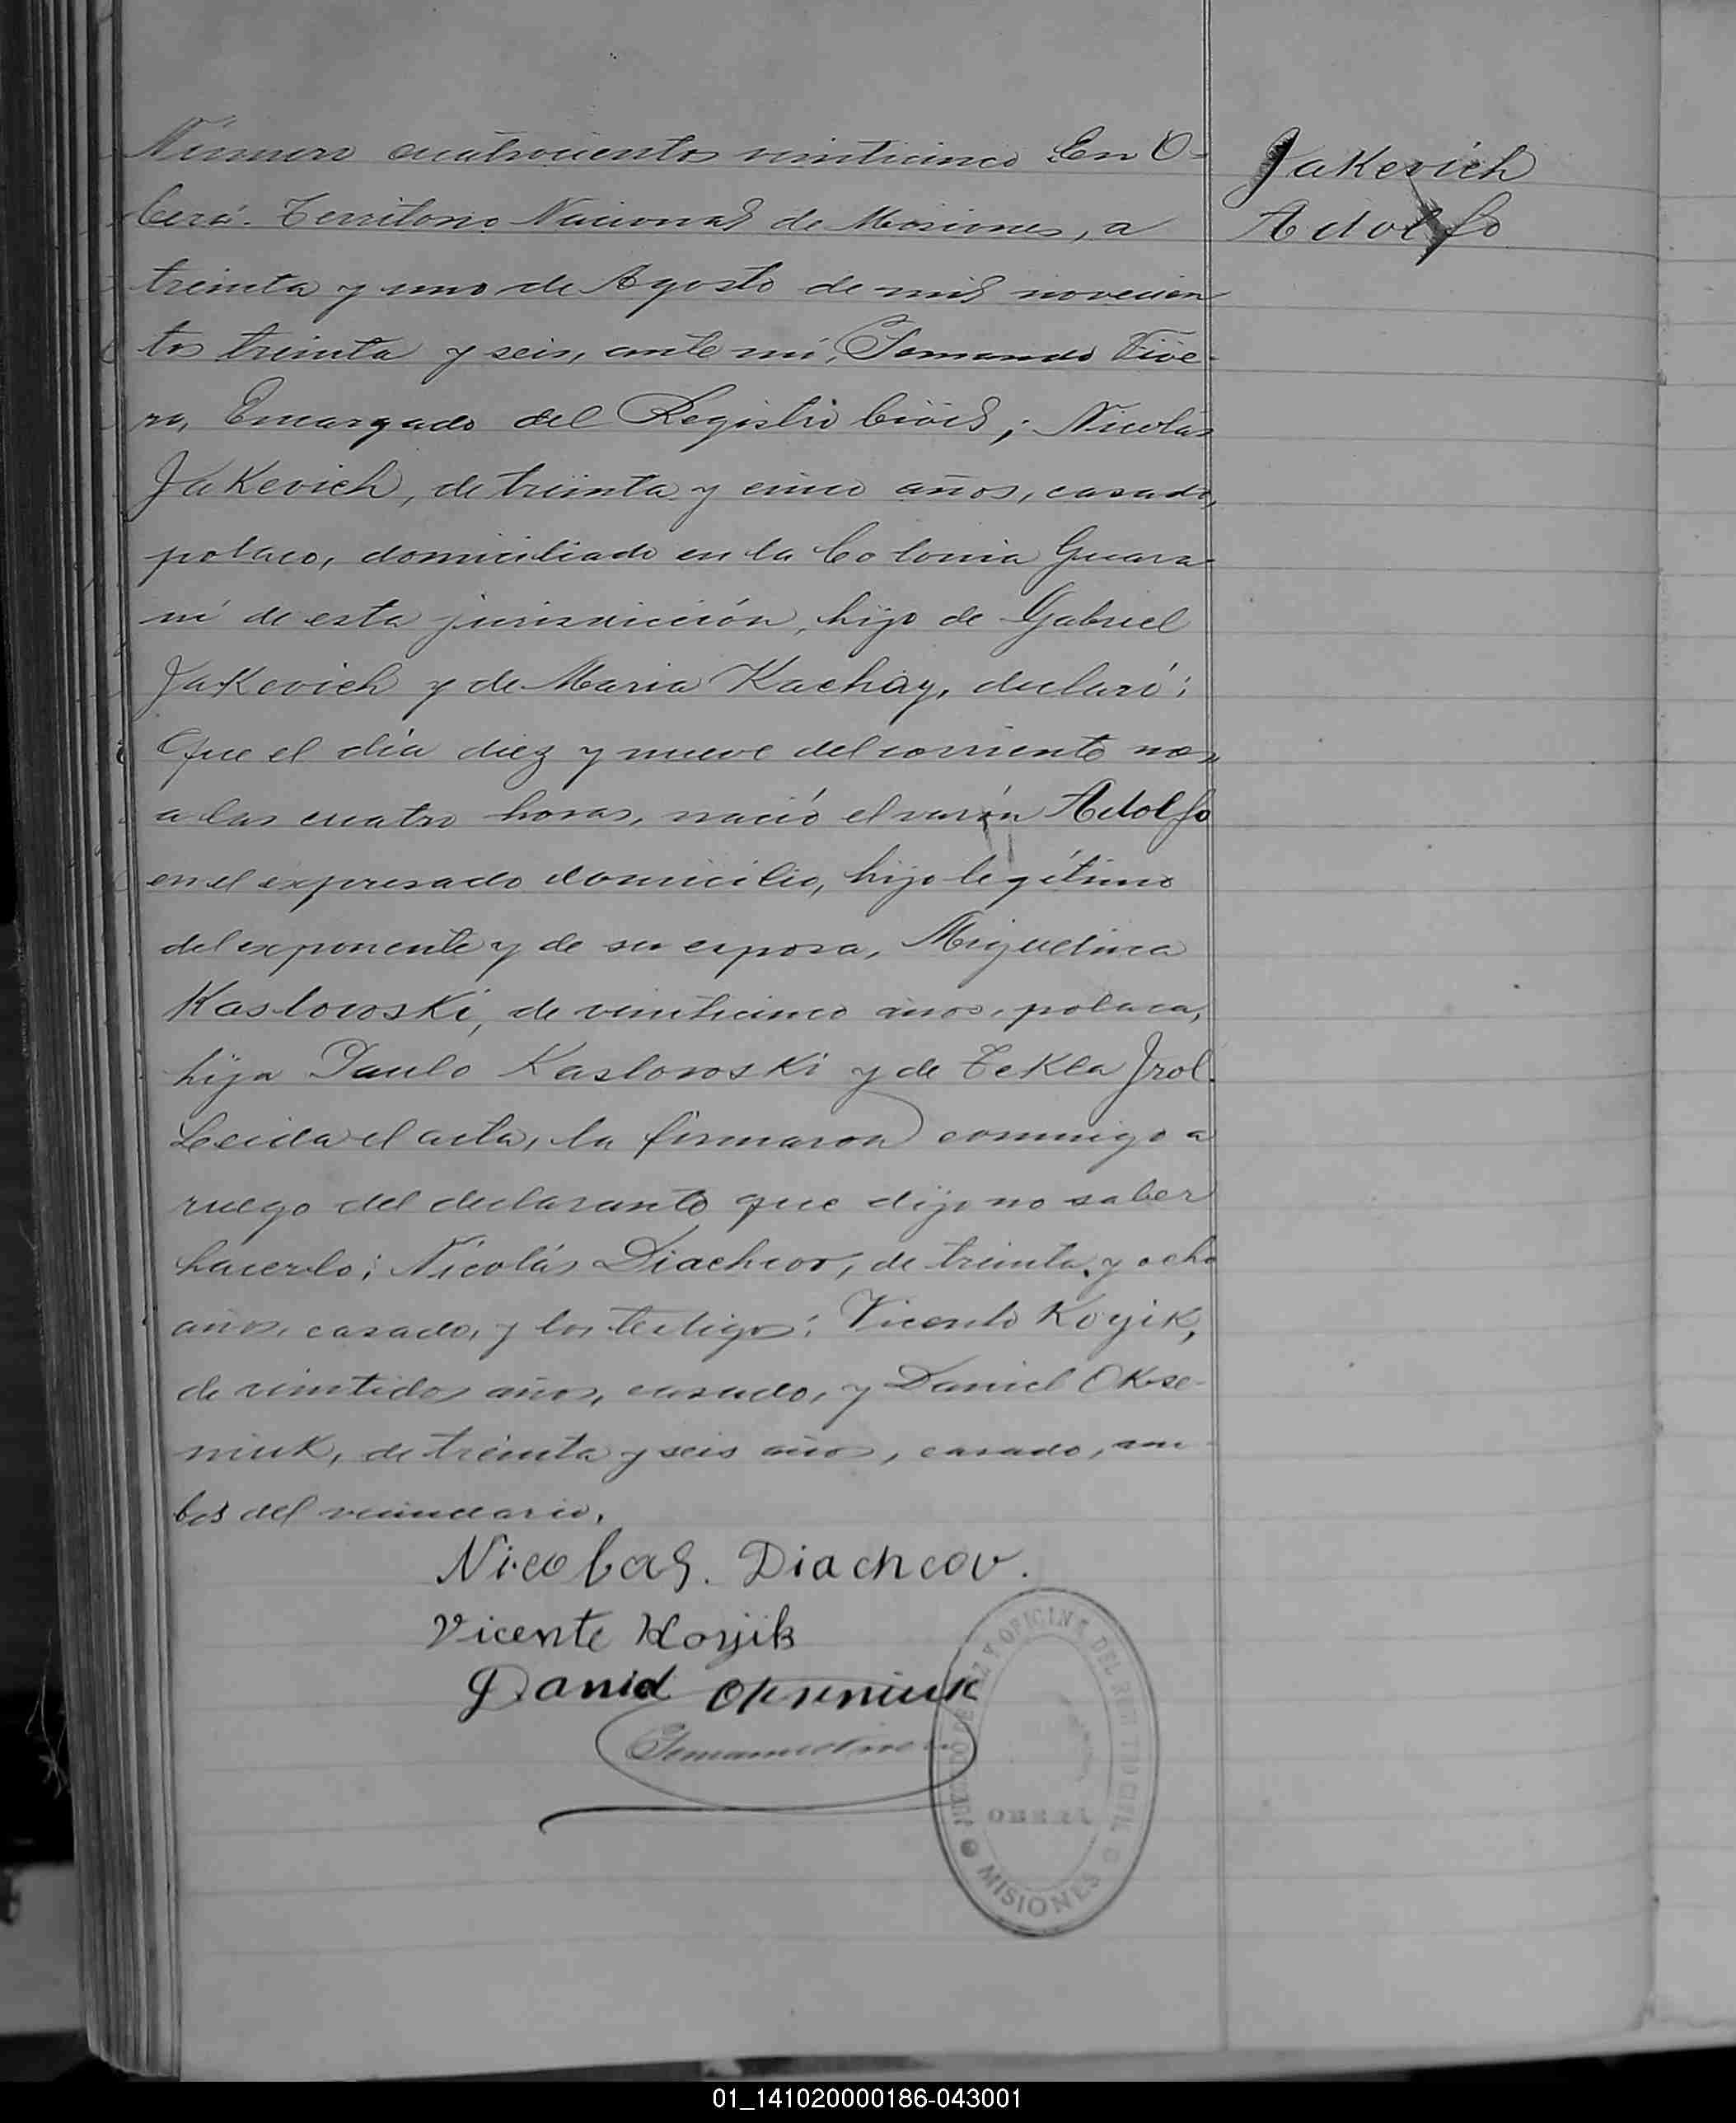 Número cuatrocientos veinticinco En O-
berá. Territorio Nacional de Misiones, a
treinta y uno de Agosto de mil novecien
tos treinta y seis, ante mí,
ro, Encargado del Registro Civil; Nicolás
Jakevich, de treinta y cinco años, casado,
polaco, domiciliado en la Colonia Guara-
ní de esta jurisdicción, hijo de Gabriel
Jakevich y de Maria Kachay, declaró:
Que el día diez y nueve del corriente mes,
a las cuatro horas, nació el varón Adolfo
en el expresado domicilio, hijo legítimo
del exponente y de su esposa, Miguelina
Kaslowski, de veinticinco años, polaca,
hija Paulo Kaslowski y de Tekla Jrol.
Leida el acta, la firmaron conmigo a
ruego del declarante que dijo no saber
hacerlo; Nicolás Diachcov, de treinta y ocho
años, casado, y los testigos: Vicente Koyik,
de veintidos años, casado, y Daniel Okse-
niuk, de treinta y seis años, casado, am-
bos del vecindario.
Nicolas. Diachcov.
Vicente Koyik
Daniel Okseniuk
JUZGADO DE PAZ Y OFICINA DEL REGISTRO CIVIL
OBERÁ
MISIONES
Jakevich
Adolfo
01_141020000186-043001